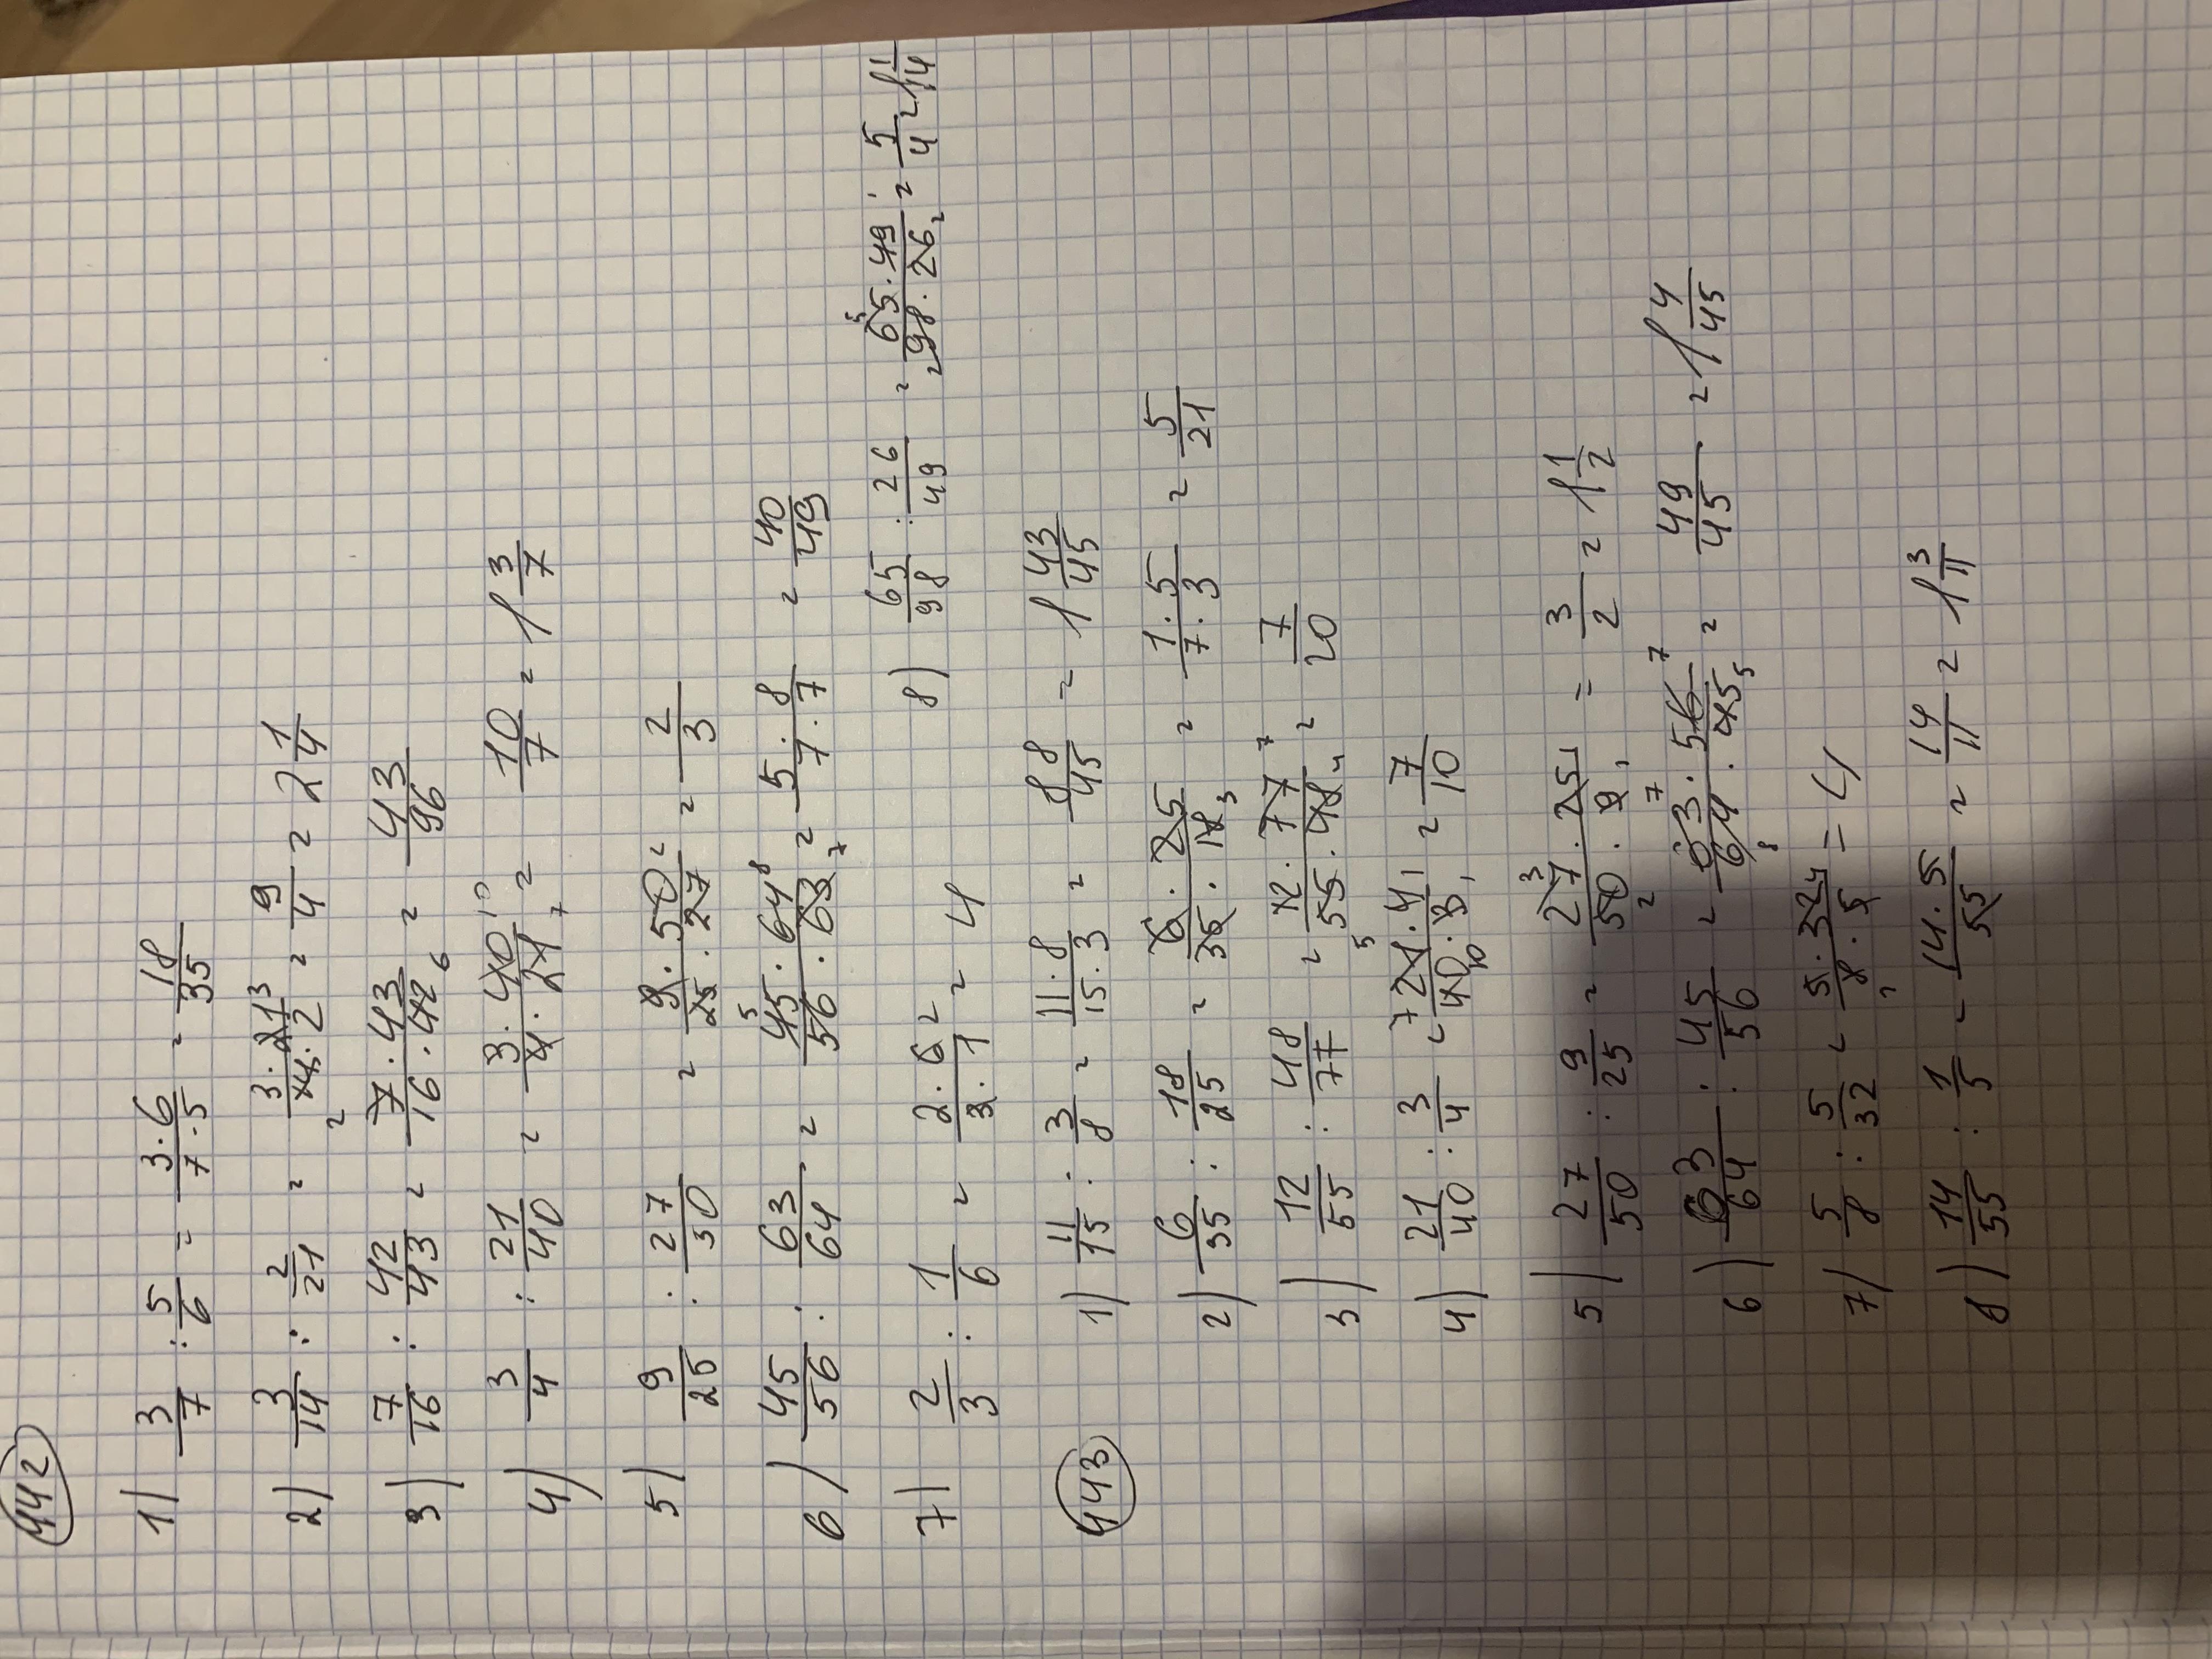 442
1) 3/7 : 5/6 = 3·6/7·5 = 18/35
2) 3/14 : 2/21 = 3·21 3/14·2 2 = 9/4 = 2 1/4
3) 7/16 : 42/43 = 7·43/16·42 6 = 43/96
4) 3/4 : 21/40 = 3·40 10/4·21 7 = 10/7 = 1 3/7
5) 9/25 : 27/50 = 9·50 2/25·27 = 2/3
6) 45/56 : 63/64 = 5 45·64 8/56·63 7 = 5·8/7·7 = 40/49
7) 2/3 : 1/6 = 2·6 2/3·1 = 4
8) 65/98 : 26/49 = 5 65·49 1/2 98·26 2 = 5/4 = 1 1/14
443
1) 11/15 : 3/8 = 11·8/15·3 = 88/45 = 1 43/45
2) 6/35 : 18/25 = 6·25/35·18 3 = 1·5/7·3 = 5/21
3) 12/55 : 48/77 = 12·77 7/5 55·48 4 = 7/20
4) 21/40 : 3/4 = 7 21·4 1/40 10·3 1 = 7/10
5) 27/50 : 9/25 = 3 27·25 1/50 2·9 1 = 3/2 = 1 1/2
6) 63/64 : 45/56 = 7 63·56 7/64 8·45 5 = 49/45 = 1 4/45
7) 5/8 : 5/32 = 5·32 4/8 1·5 = 4
8) 14/55 : 1/5 = 14·5/55 = 14/11 = 1 3/11